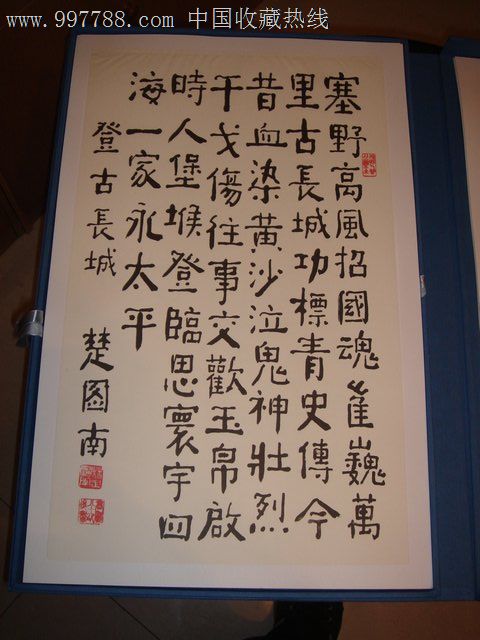 www.997788.com 中国收藏热线
塞野高風招國魂崔巍萬
里古長城功標青史傳今
昔血染黄沙泣鬼神壯烈
干戈傷往事交歡玉帛啟
時人堡堠登臨思寰宇四
海一家永太平
登古長城 楚圖南